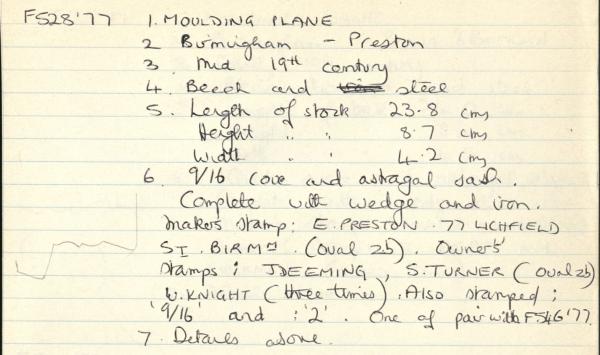 F528'77 1. MOULDING PLANE
2 Birmingham - Preston
3. Mid 19th century
4. Beech and steel
5. Length of stock 23.8 cms
Height " " 8.7 cms
Width " " 4.2 cms
6. 9/16 cove and astragal sash.
Complete with wedge and iron.
Makers stamp: E. PRESTON. 77 LICHFIELD
ST. BIRMM. (oval 2b). Owners'
stamps: J DEEMING, S. TURNER (oval 2b)
W. KNIGHT (three times). Also stamped:
'9/16' and : '2'. One of pair with F546'77.
7. Details above.